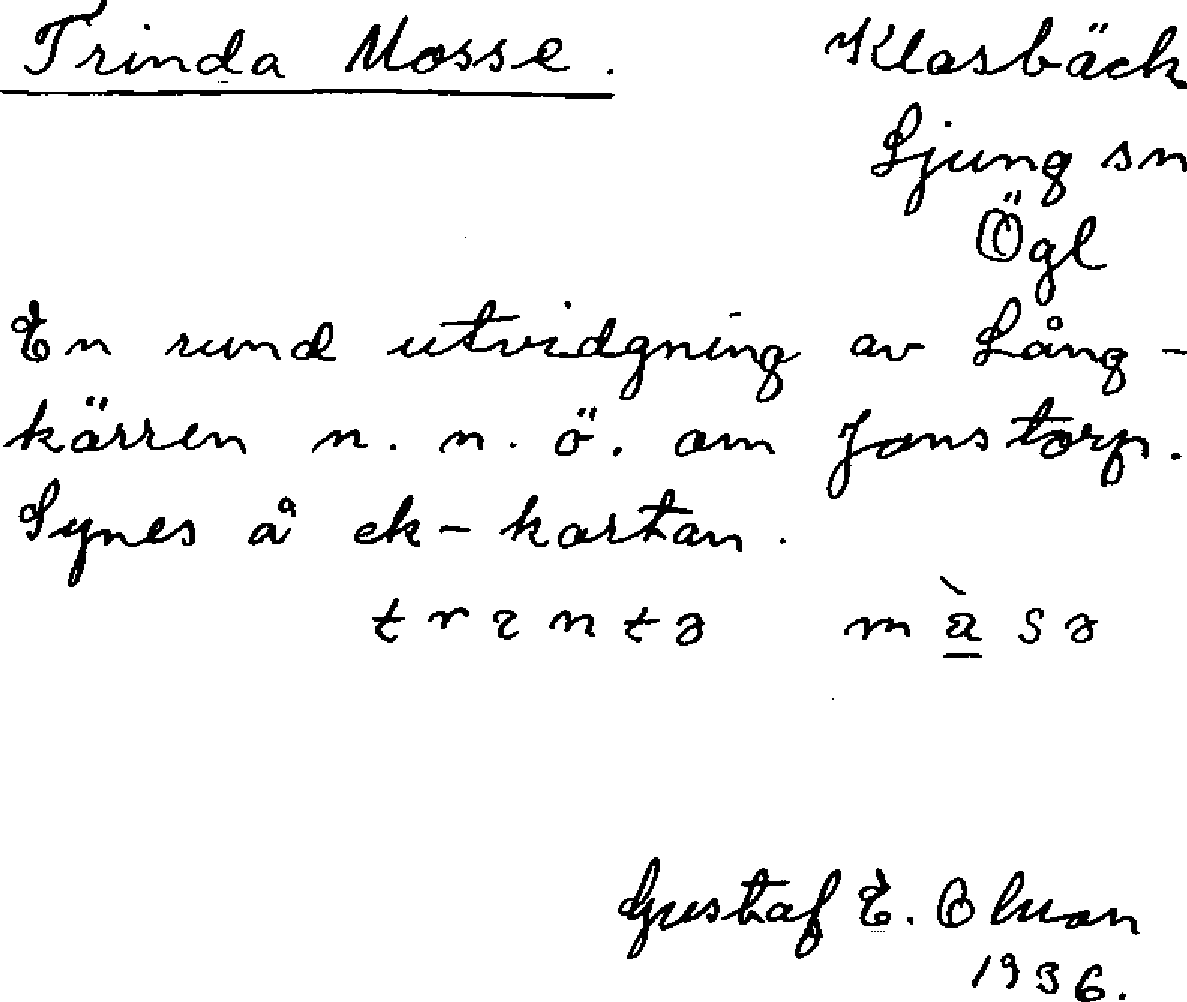 Trinda Mosse.
Klasbäck
Ljung sn
Ögl
En rund utvidgning av Lång-
kärren n. n. ö. om Janstorp.
Synes å ek-kartan.
Gustaf E.
1936.